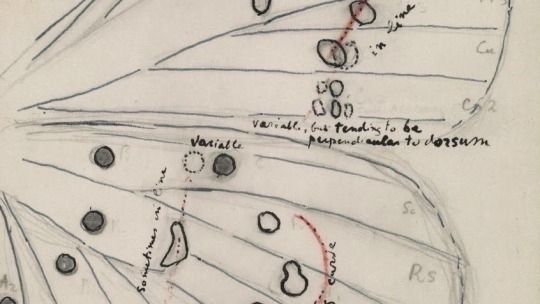 in line
Cu
Cu2
variable, but tending to be
perpendicular to dorsum
variable
sometimes in line
Sc
Rs
curve
A2